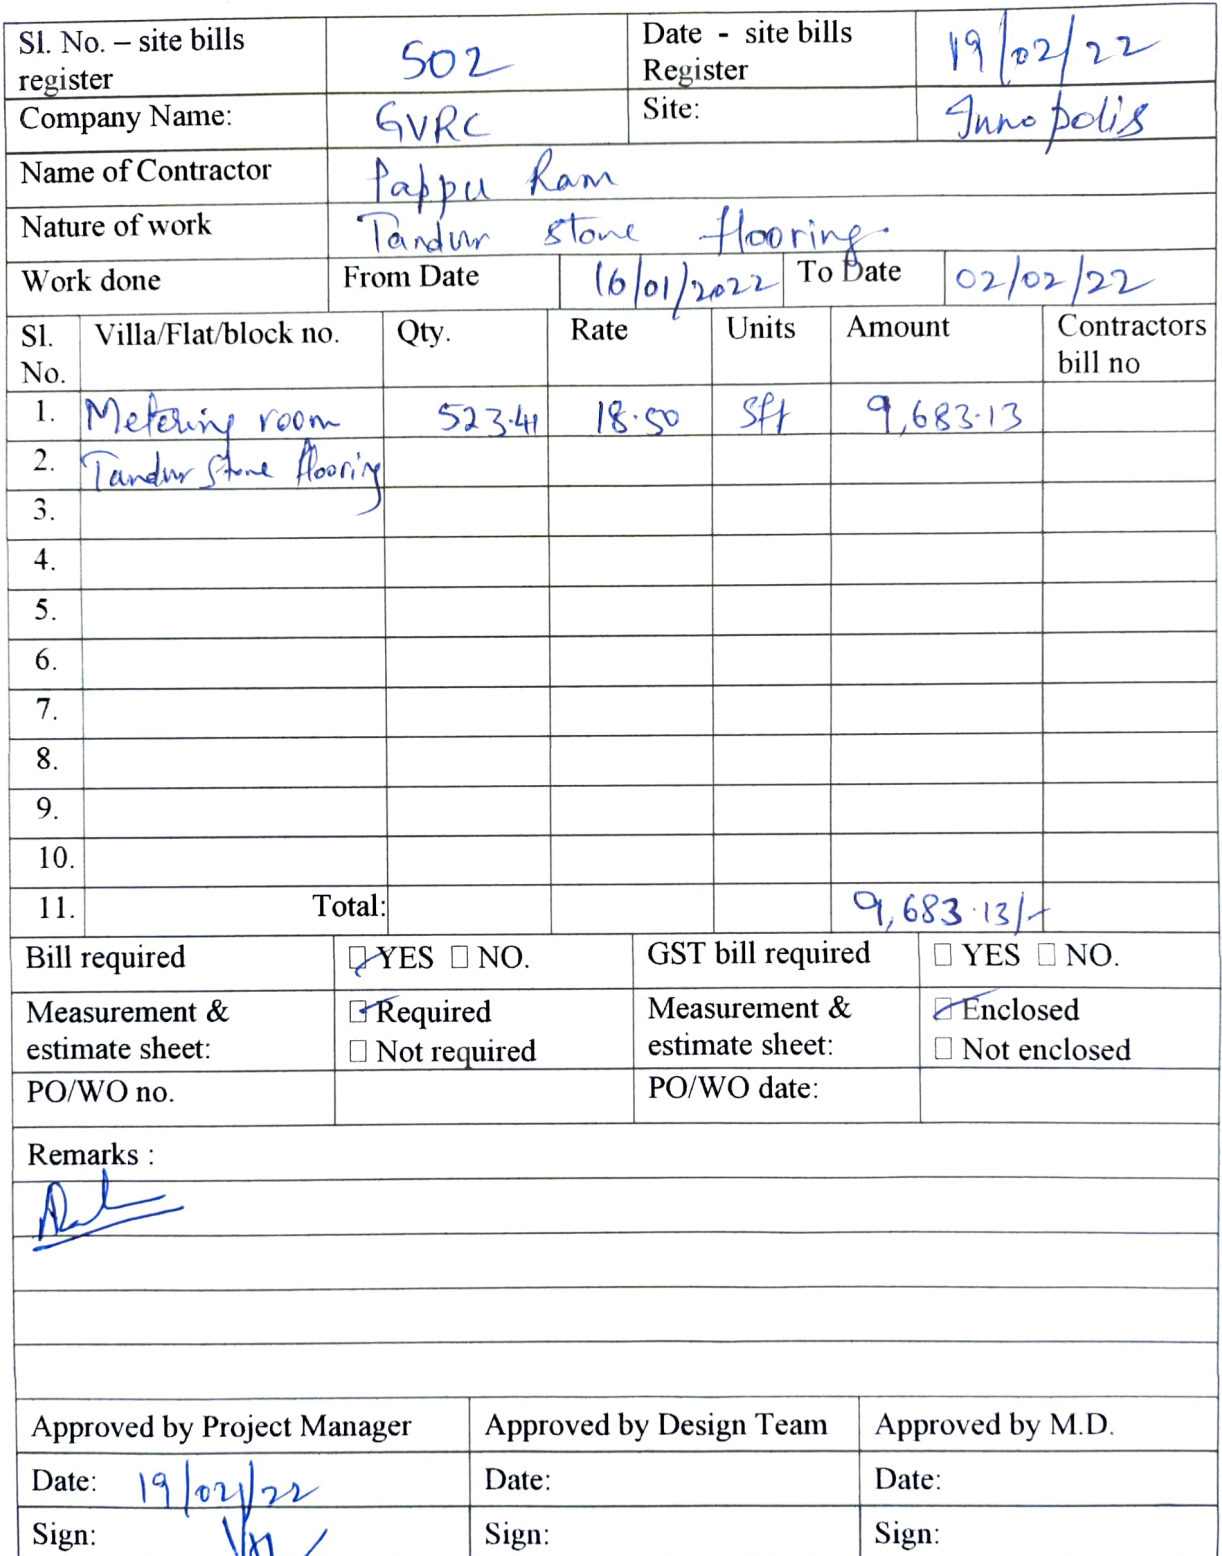 Sl. No. – site bills register 502 Date - site bills Register 19/02/22
Company Name: GVRC Site: Innopolis
Name of Contractor Pappu Ram
Nature of work Tandur stone flooring.
Work done From Date 16/01/2022 To Date 02/02/22
Sl. No. Villa/Flat/block no. Qty. Rate Units Amount Contractors bill no
1. Metering room 523.41 18.50 sft 9,683.13
2. Tandur stone flooring
3.
4.
5.
6.
7.
8.
9.
10.
11. Total: 9,683.13/-
Bill required ☑ YES ☐ NO. GST bill required ☐ YES ☐ NO.
Measurement & estimate sheet: ☑ Required ☐ Not required Measurement & estimate sheet: ☑ Enclosed ☐ Not enclosed
PO/WO no. PO/WO date:
Remarks :
Approved by Project Manager Approved by Design Team Approved by M.D.
Date: 19/02/22 Date: Date:
Sign: Sign: Sign: